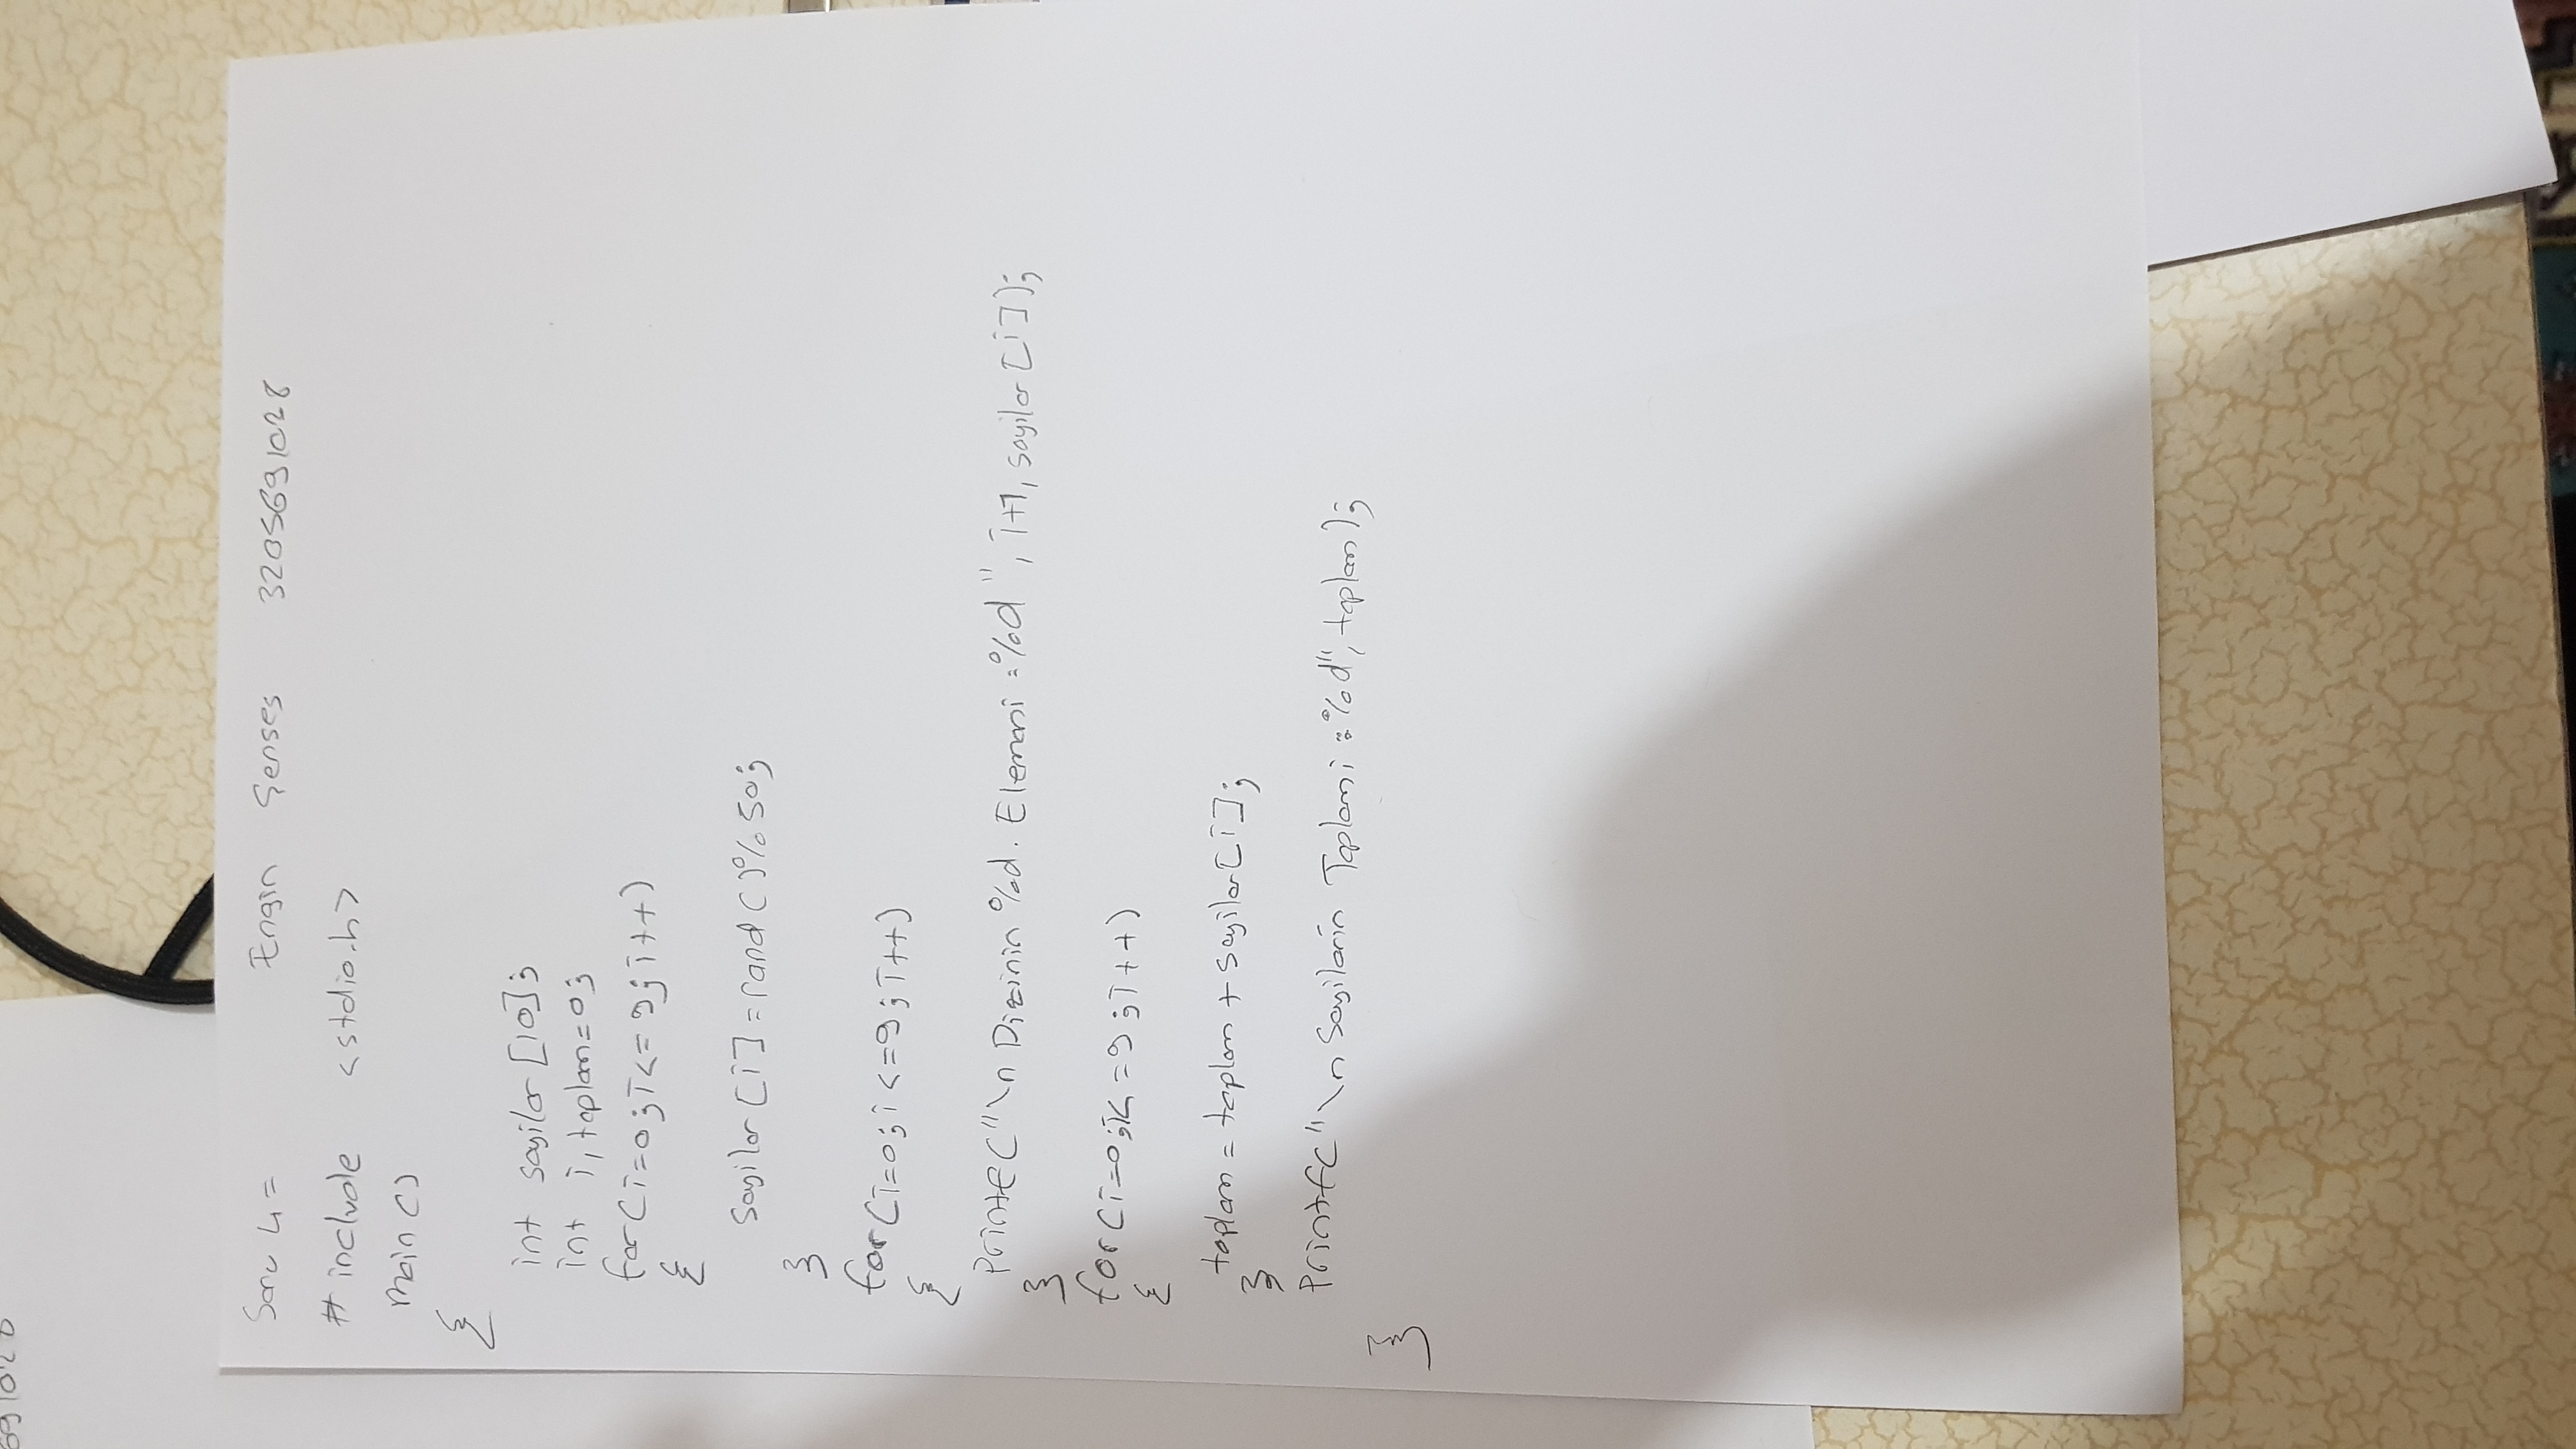 691028
Soru 4= Engin Şenses 3205691028
#include <stdio.h>
main()
{
int sayilar[10];
int i, toplam=0;
for(i=0;i<=9;i++)
{
sayilar[i]=rand()%50;
}
for(i=0;i<=9;i++)
{
printf("\n Dizinin %d. Elemani :%d", i+1, sayilar[i]);
}
for(i=0;i<=9;i++)
{
toplam = toplam + sayilar[i];
}
printf("\n Sayilarin Toplami :%d", toplam);
}